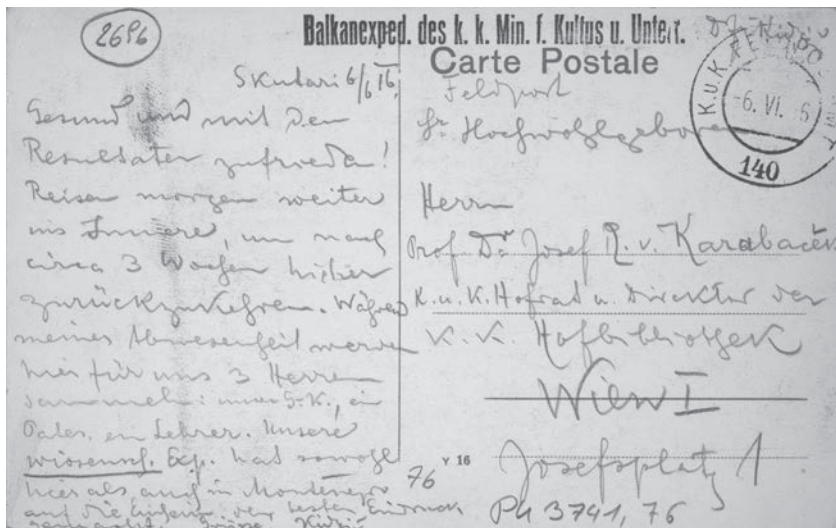 2696
Balkanexped. des k. k. Min. f. Kultus u. Unterr.
Carte Postale
Skutari 6/6 16.
Gesund und mit den
Resultaten zufrieden!
Reisen morgen weiter
ins Innere, um nach
circa 3 Wochen hieher
zurückzukehren. Während
meiner Abwesenheit werden
hier für uns 3 Herren
sammeln: unser G.K., ein
Pater, ein Lehrer. Unsere
wissensch. Exp. hat sowohl
hier als auch in Montenegro
auf die besten Eindruck
gemacht. Grüsse
Feldpost
Sr. Hochwohlgeboren
Herrn
Prof. Dr Josef R. v. Karabaček
K. u. K. Hofrat u. Direktor der
K. K. Hofbibliothek
Wien I
Josefsplatz 1
K.U.K. FELDPOSTAMT
-6. VI. 16
140
Y 16
76
PH 3741, 76